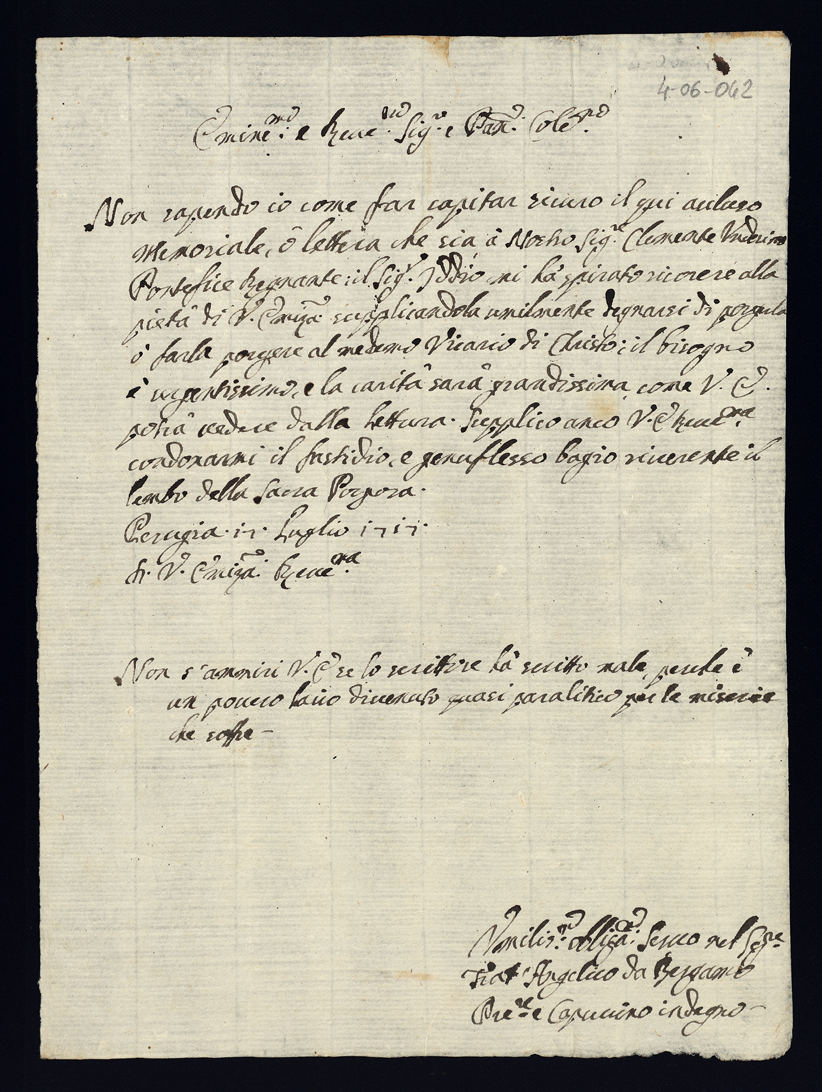 4-06-042
Emine.mo e Reue.mo Sig.r e Pan.e Cole.mo
Non sapendo io come far capitar sicuro il qui acluso
Memoriale, ò lettera che sia à Nostro Sig.re Clemente Undecimo
Pontefice Regnante: il Sig.r Iddio mi hà spirato ricorere alla
pietà di V. Emiza supplicandola umilmente degnarsi di porgerla
ò farla porgere al medemo Vicario di Christo: il bisogno
è urgentissimo, e la carità sarà grandissima come V. E.
potrà vedere dalla lettura. Supplico anco V. E Reue.ma
condonarmi il fastidio, e genuflesso bagio riuerente il
lembo della Sacra Porpora.
Perugia. 17. Luglio 1717.
di. V. Emiza. Reue.ma
Non s'ammiri V. E se lo scrittore hà scritto male, perche è
un pouero laico diuenuto quasi paralitico per le miserie
che soffre -
Vmilis.mo obliga.mo Seruo nel Sig.re
Frat' Angelico da Bergamo
Pre.re Capucino indegno -